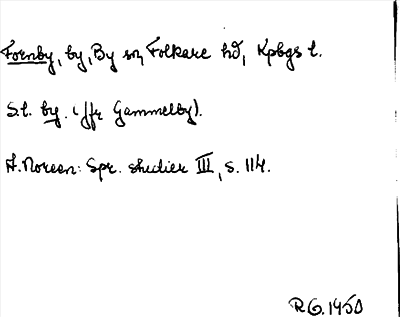 Fornby, by, By sn, Folkare hd, Kpbgs l.
S.l. by. (jfr Gammelby).
A. Noreen: Spr. studier III, s. 114.
R G. 1950